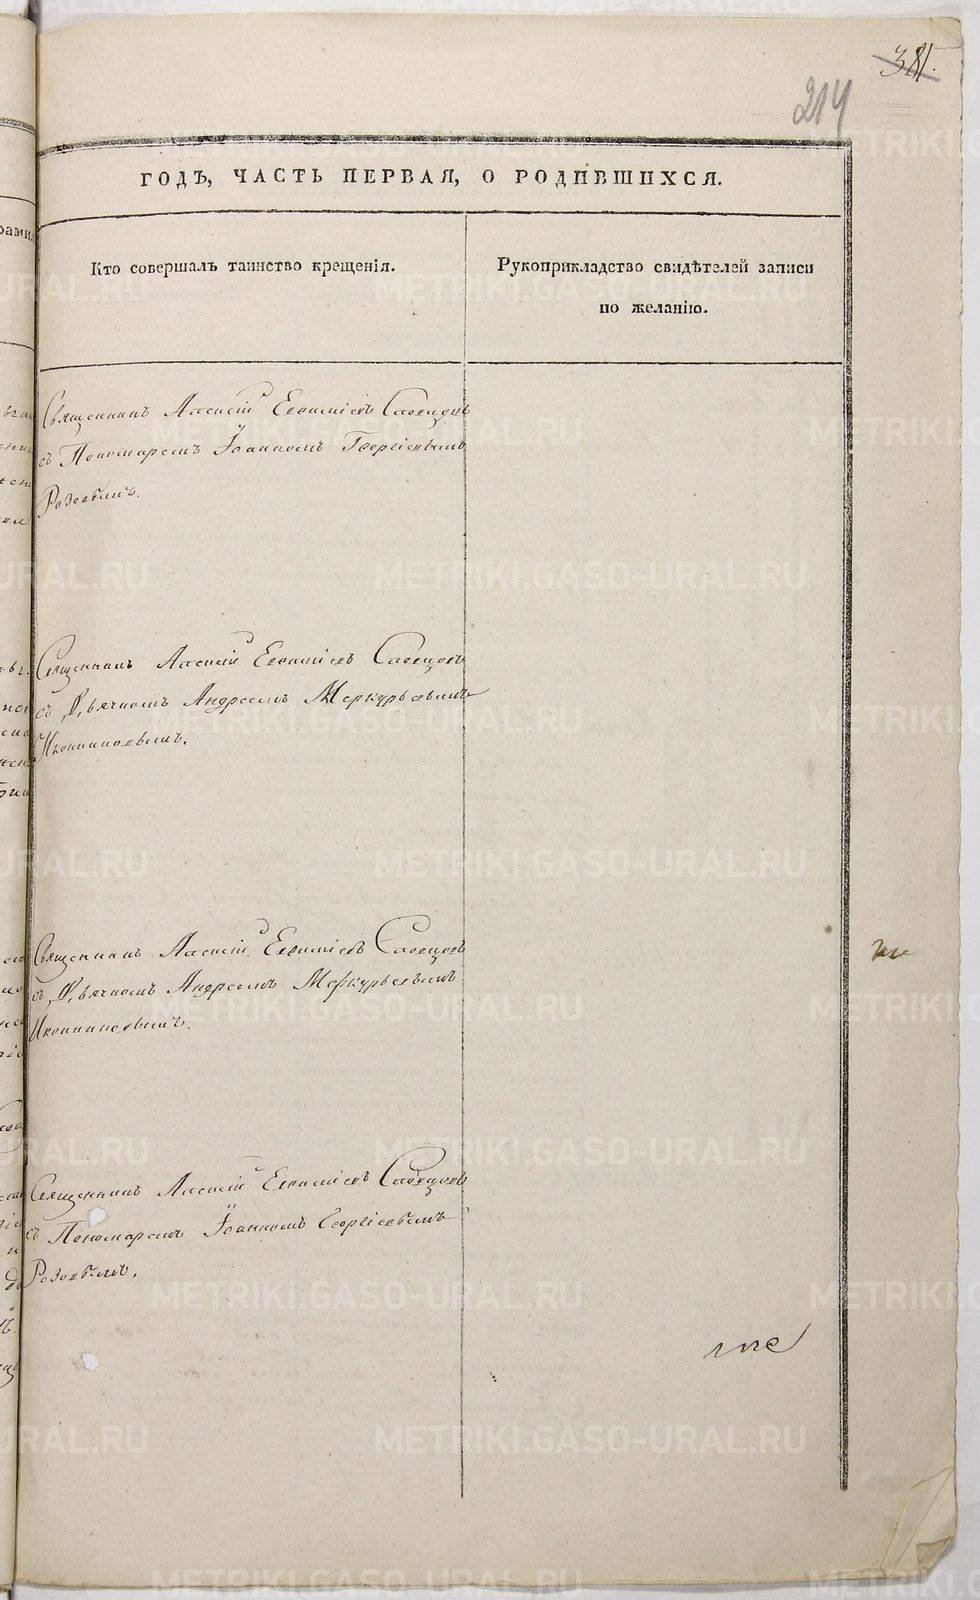 381.
214
ГОДЪ, ЧАСТЬ ПЕРВАЯ, О РОДИВШИХСЯ.
Кто совершалъ таинство крещенія.
Рукоприкладство свидѣтелей записи
по желанію.
Священникъ Алексій Евѳиміевъ Словцовъ
съ Пономаремъ Іоанномъ Георгіевымъ
Розовымъ.
Священникъ Алексій Евѳиміевъ Словцовъ
съ Дьячкомъ Андреемъ Меркурьевымъ
Иконниковымъ.
Священникъ Алексій Евѳиміевъ Словцовъ
съ Дьячкомъ Андреемъ Меркурьевымъ
Иконниковымъ.
Священникъ Алексій Евѳиміевъ Словцовъ
съ Пономаремъ Іоанномъ Георгіевымъ
Розовымъ.
METRIKI.GASO-URAL.RU